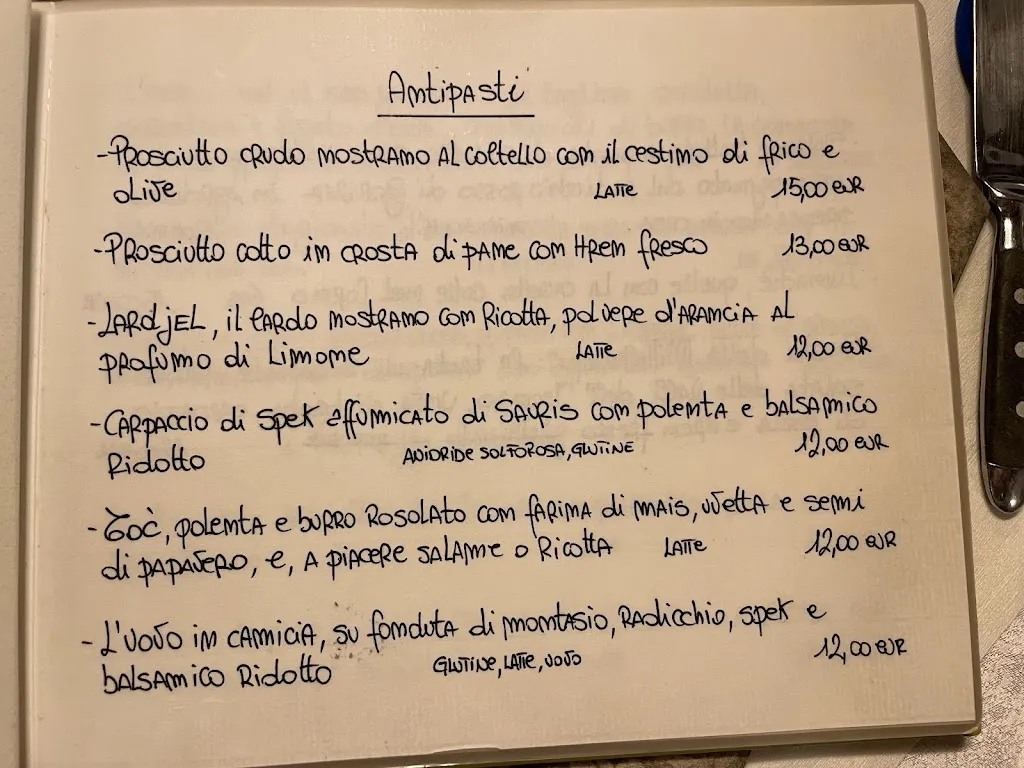 Antipasti
-Prosciutto crudo nostrano al coltello con il cestino di frico e
olive LATTE 15,00 EUR
-Prosciutto cotto in crosta di pane con Hren fresco 13,00 EUR
-Lardjel, il lardo nostrano con Ricotta, polvere d'arancia al
profumo di Limone LATTE 12,00 EUR
-Carpaccio di Spek affumicato di Sauris con polenta e balsamico
Ridotto ANIDRIDE SOLFOROSA, GLUTINE 12,00 EUR
-Toč, polenta e burro Rosolato con farina di mais, uvetta e semi
di papavero, e, a piacere salame o Ricotta LATTE 12,00 EUR
-L'uovo in camicia, su fonduta di montasio, Radicchio, spek e
balsamico Ridotto GLUTINE, LATTE, UOVO 12,00 EUR